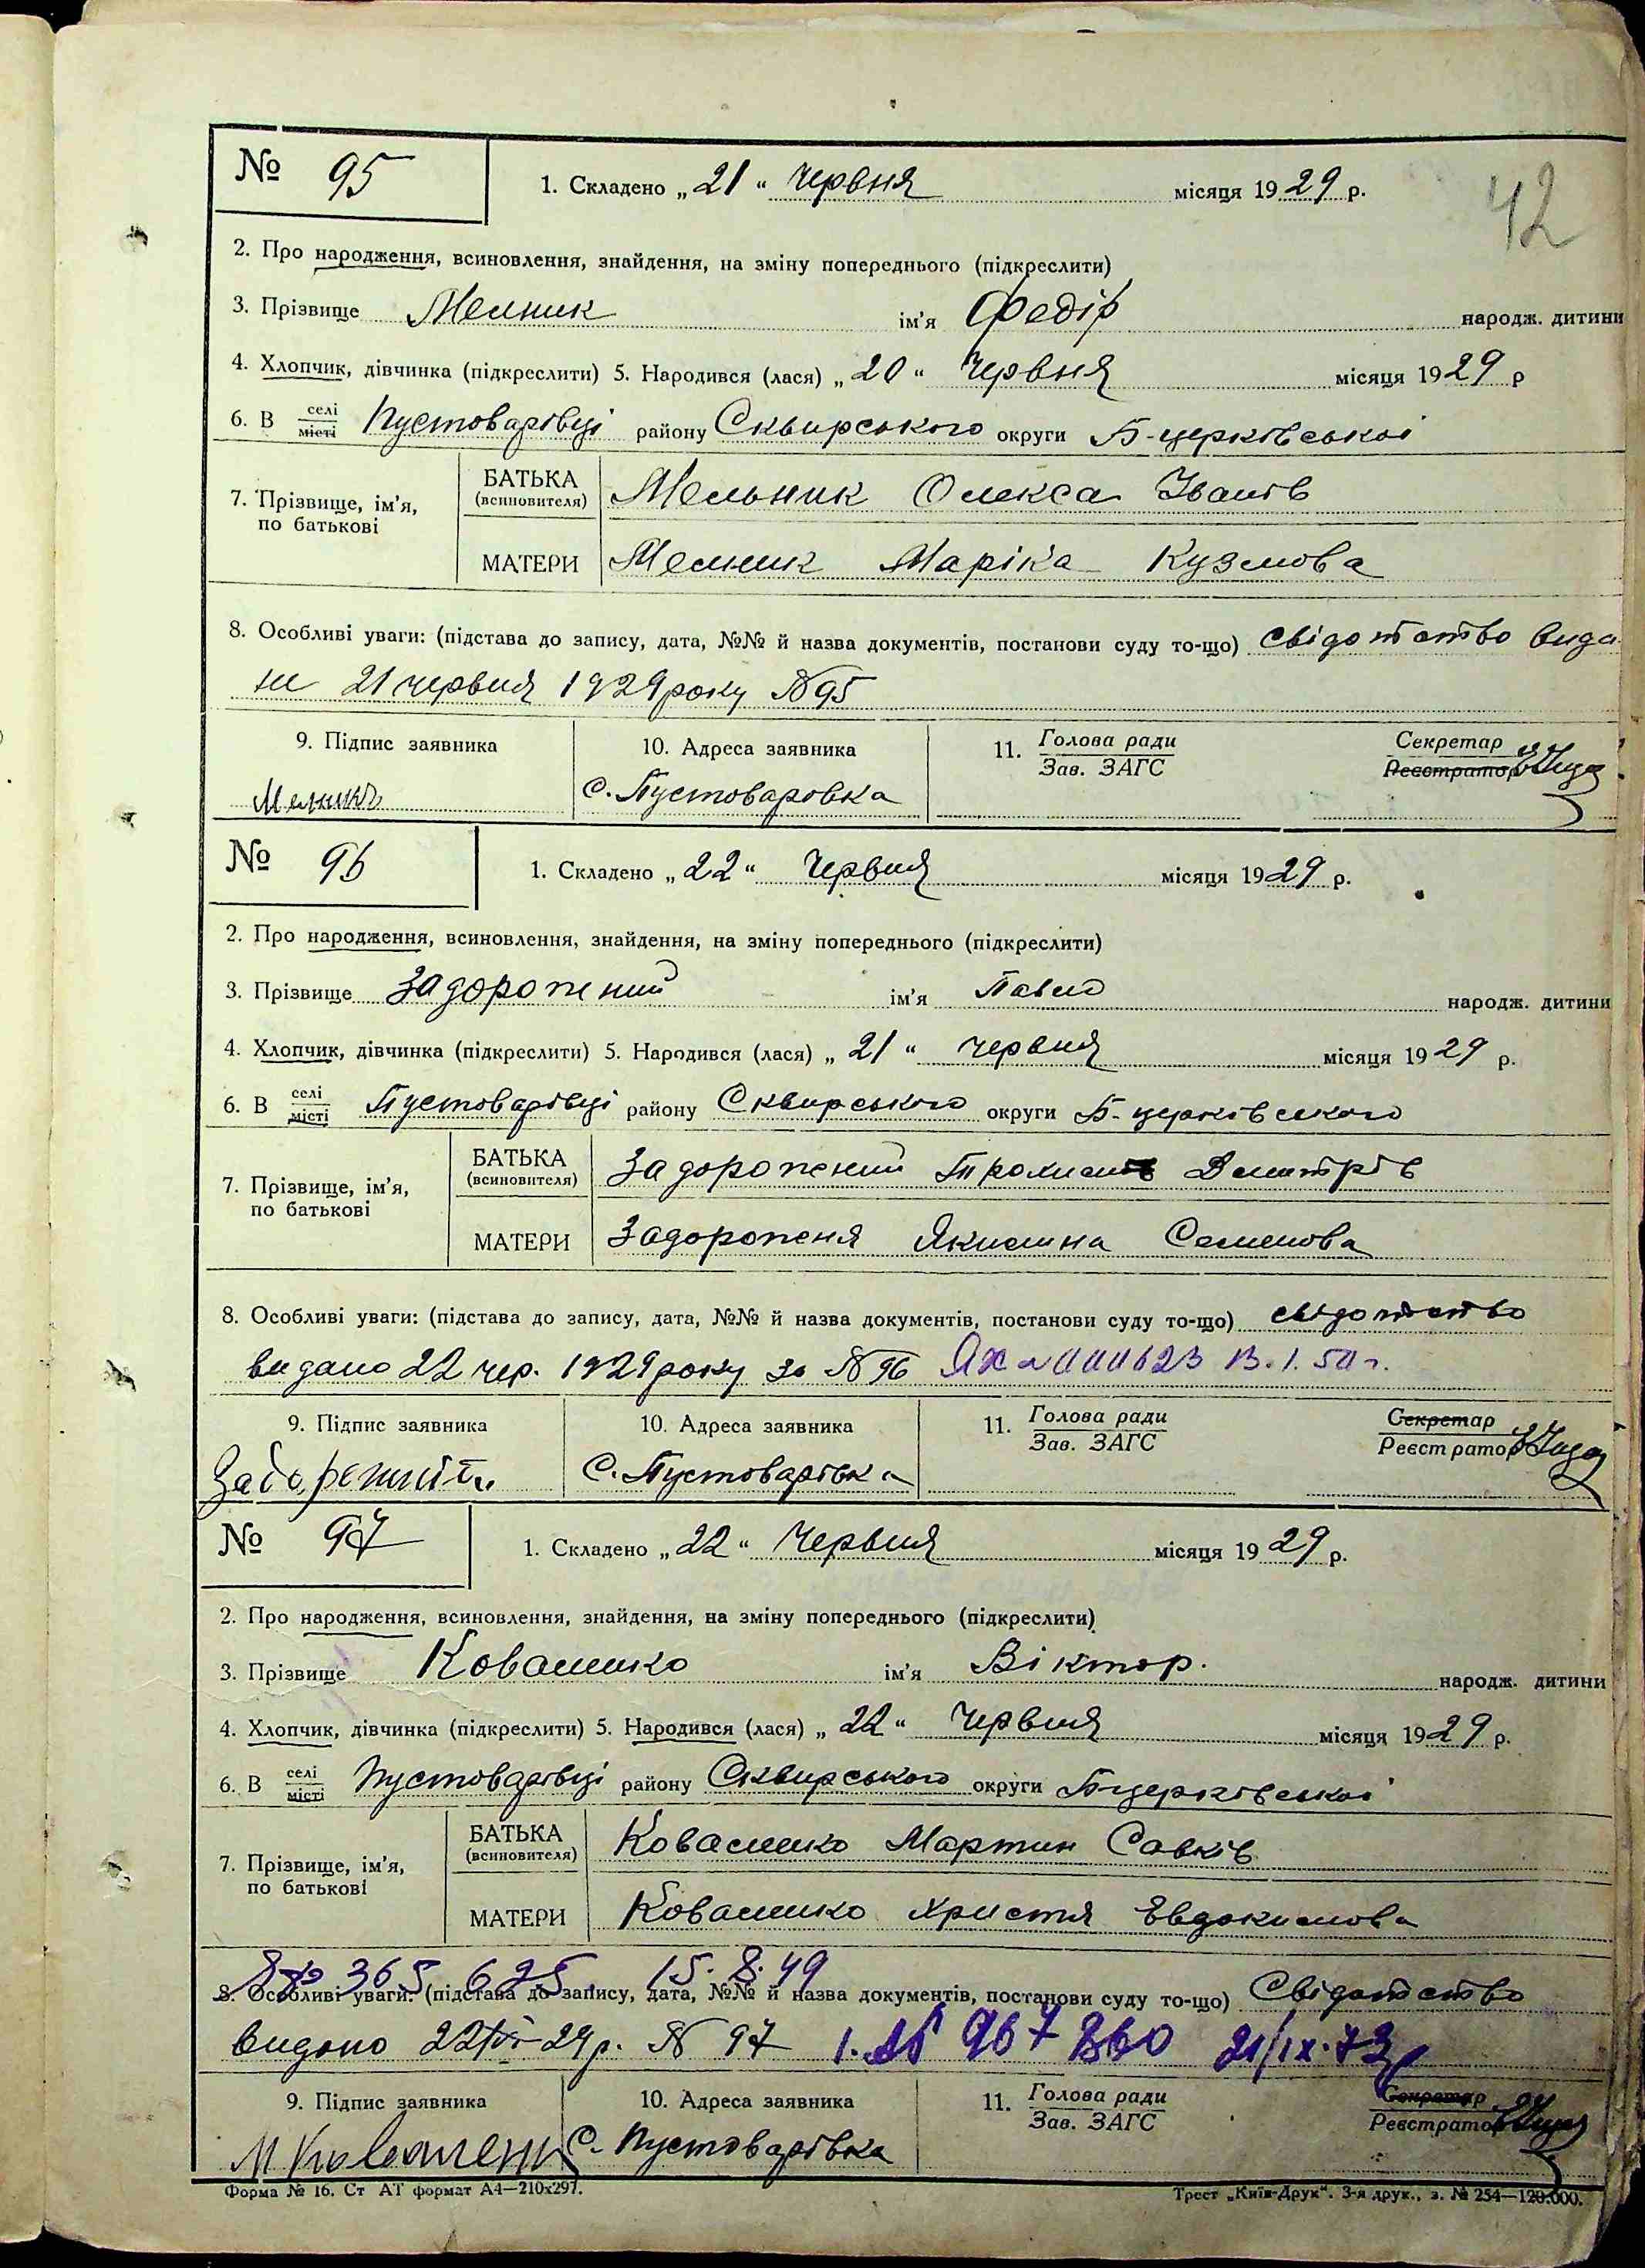 42
№ 95
1. Складено „21“ червня місяця 1929 р.
2. Про народження, всиновлення, знайдення, на зміну попереднього (підкреслити)
3. Прізвище Мелник ім'я Федір народж. дитини
4. Хлопчик, дівчинка (підкреслити) 5. Народився (лася) „20“ червня місяця 1929 р
6. В селі місті Пустоварівці району Сквирського округи Б-церківської
7. Прізвище, ім'я, по батькові
БАТЬКА (всиновителя) Мельник Олекса Іванів
МАТЕРИ Мелник Маріка Кузмова
8. Особливі уваги: (підстава до запису, дата, №№ й назва документів, постанови суду то-що) свідотство вида
не 21 червня 1929 року №95
9. Підпис заявника 10. Адреса заявника 11. Голова ради Зав. ЗАГС Секретар Реєстратор
Мелникъ с. Пустоваровка
№ 96
1. Складено „22“ Червня місяця 1929 р.
2. Про народження, всиновлення, знайдення, на зміну попереднього (підкреслити)
3. Прізвище Задорожний ім'я Павло народж. дитини
4. Хлопчик, дівчинка (підкреслити) 5. Народився (лася) „21“ червня місяця 1929 р.
6. В селі місті Пустоварівці району Сквирського округи Б-церківського
7. Прізвище, ім'я, по батькові
БАТЬКА (всиновителя) Задорожний Дмитрів
МАТЕРИ Задорожня Якилина Семенова
8. Особливі уваги: (підстава до запису, дата, №№ й назва документів, постанови суду то-що) свідотство
видано 22 чер. 1929 року за №96 13.1.50 г.
9. Підпис заявника 10. Адреса заявника 11. Голова ради Зав. ЗАГС Секретар Реєстратор
с. Пустоварівка
№ 97
1. Складено „22“ Червня місяця 1929 р.
2. Про народження, всиновлення, знайдення, на зміну попереднього (підкреслити)
3. Прізвище Коваленко ім'я Віктор. народж. дитини
4. Хлопчик, дівчинка (підкреслити) 5. Народився (лася) „22“ Червня місяця 1929 р.
6. В селі місті Пустоварівці району Сквирського округи Б-церківської
7. Прізвище, ім'я, по батькові
БАТЬКА (всиновителя) Коваленко Мартин Савків
МАТЕРИ Коваленко Христя Евдокимова
365 625 15.8.49
8. Особливі уваги: (підстава до запису, дата, №№ й назва документів, постанови суду то-що) Свідотство
видано 22/VI-29 р. № 97 967860 21/IX.73
9. Підпис заявника 10. Адреса заявника 11. Голова ради Зав. ЗАГС Секретар Реєстратор
с. Пустоварівка
Форма № 16. Ст АТ формат А4—210х297. Трест „Київ-Друк“. 3-я друк., з. № 254—120.000.